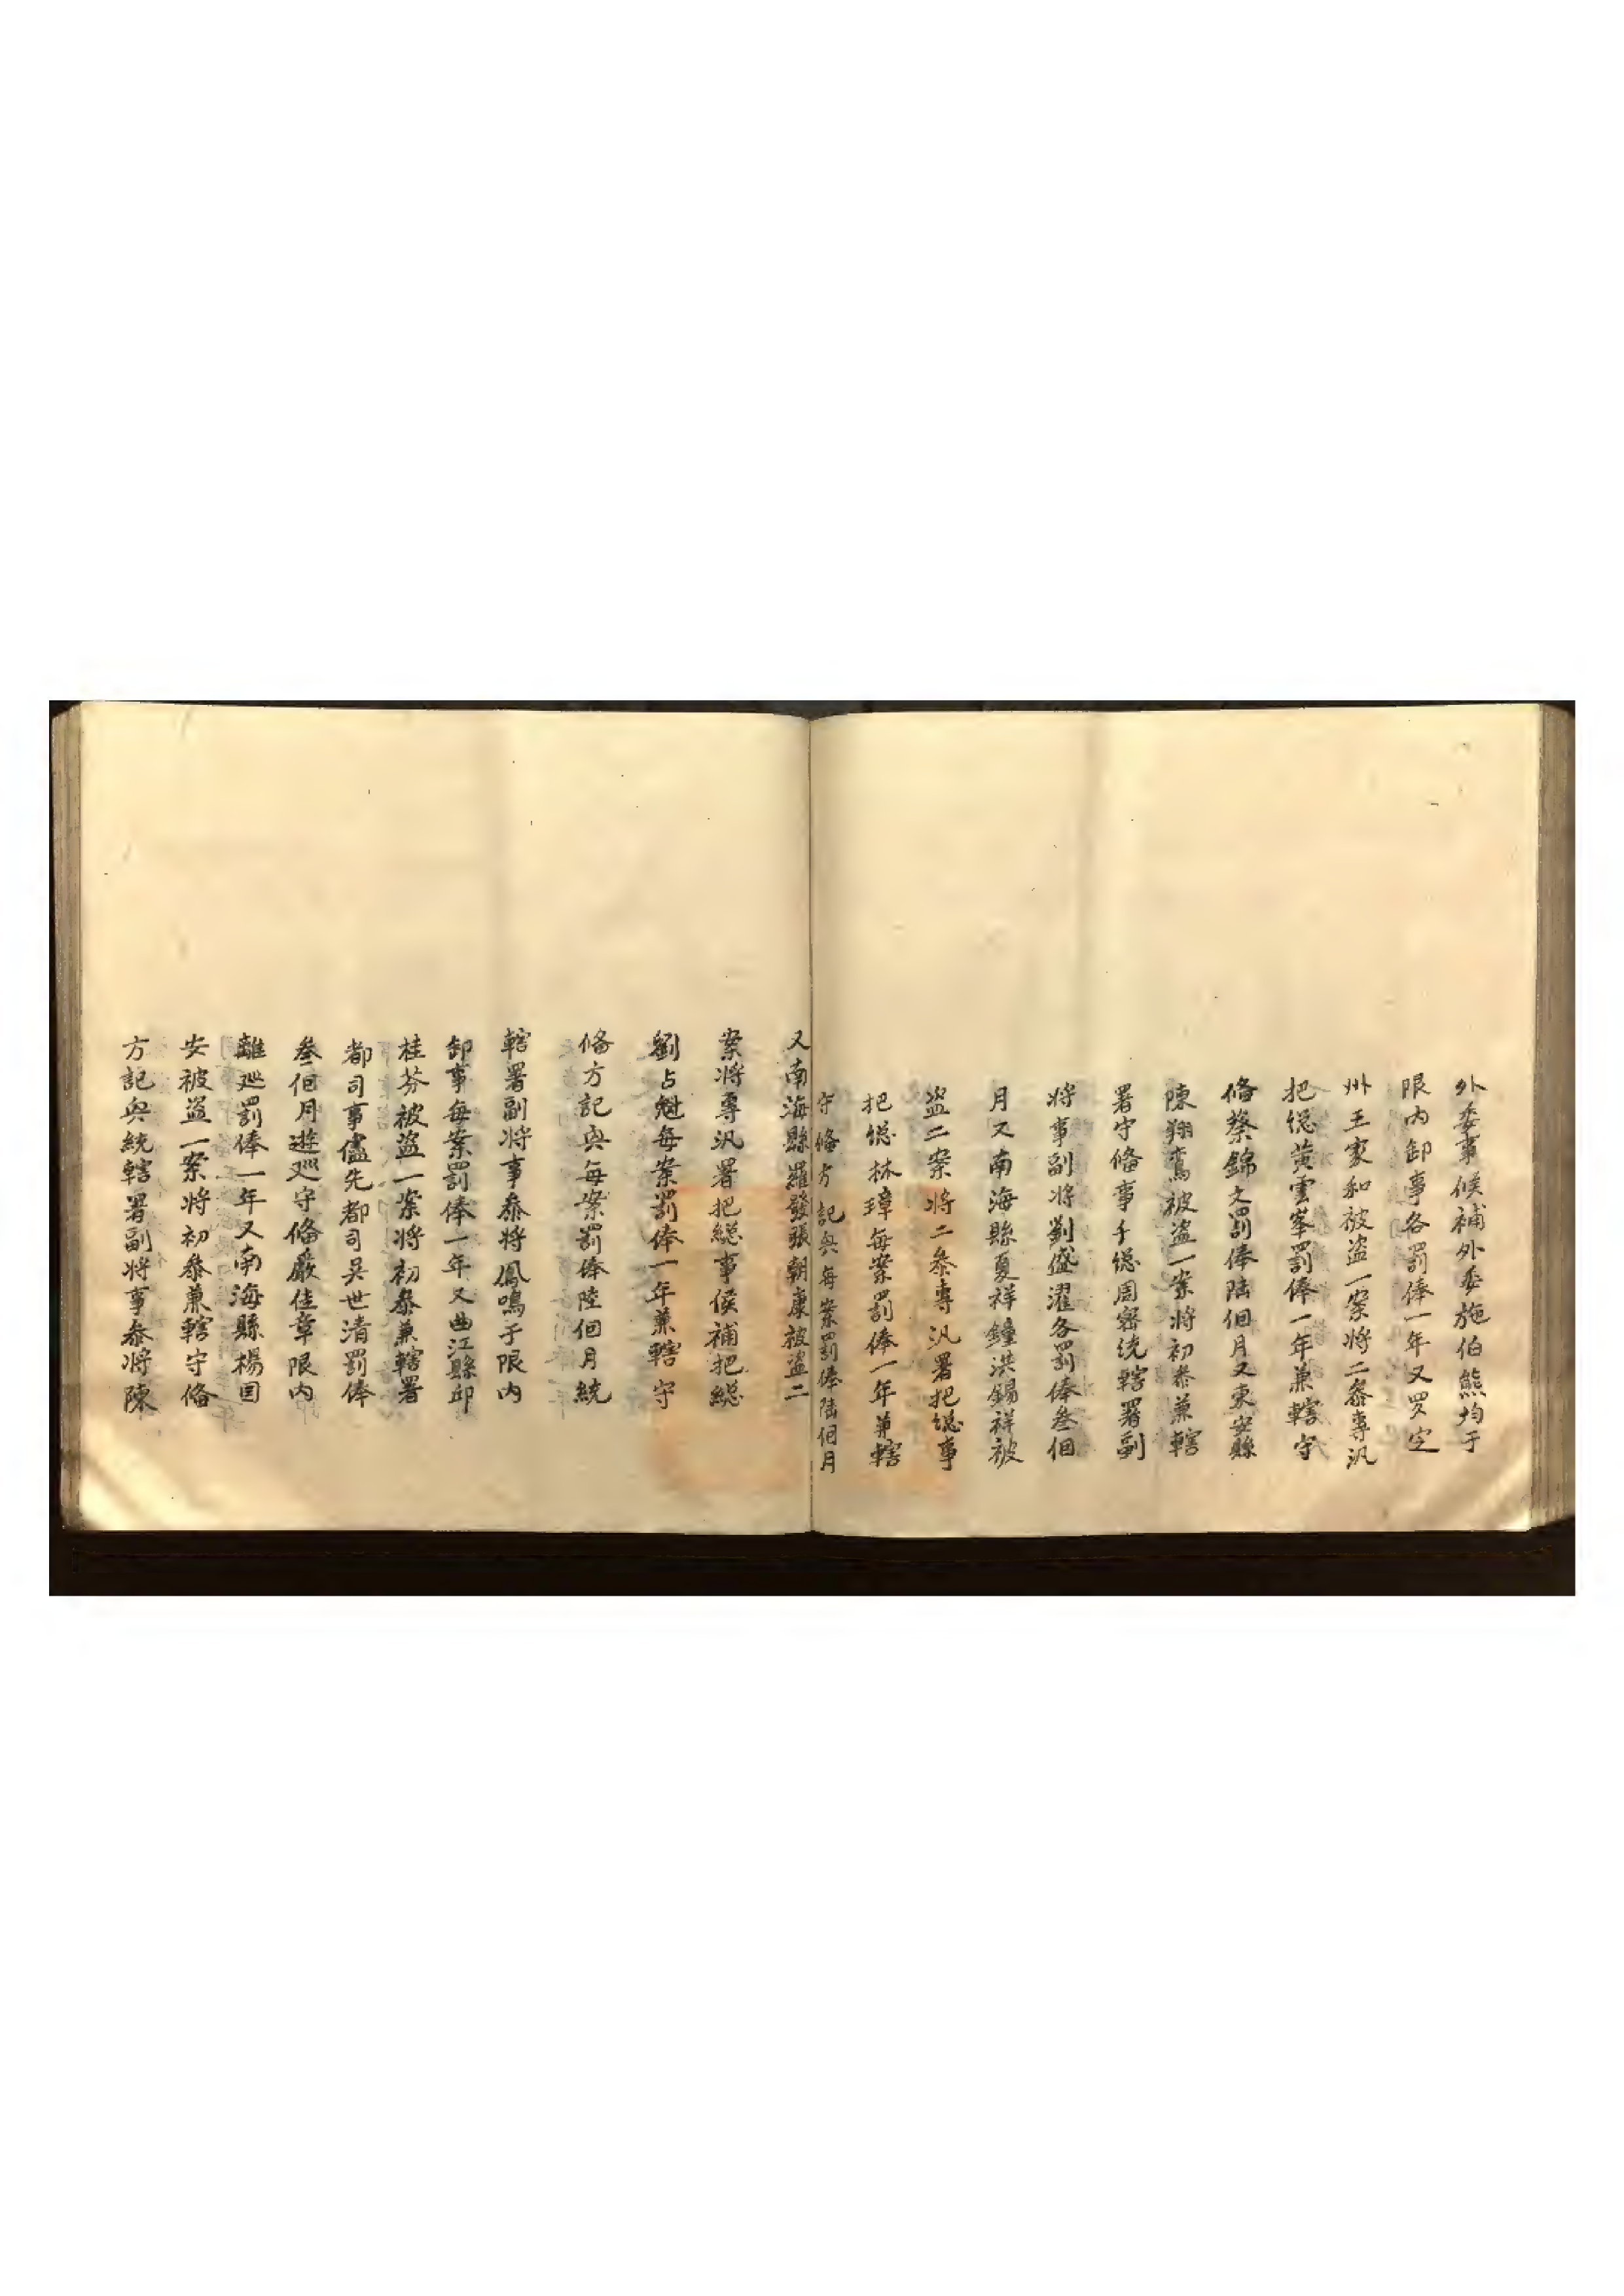 外委事候補外委施伯熊均于
限内卸事各罰俸一年又罗定
州王家和被盗一案將二叅專汛
把総黄雲峯罰俸一年兼轄守
俻蔡錦文罰俸陆個月又東安縣
陳翔鸞被盗一案将初叅兼轄
署守俻事千総周密统轄署副
将事副将劉盛濯各罰俸叁個
月又南海縣夏祥鐘洪錫祥被
盗二案将二叅專汛署把総事
把総林璋每案罰俸一年兼轄
守俻方記與每案罰俸陆個月
又南海縣羅發張朝康被盗二
案将專汛署把総事候補把総
劉占魁每案罰俸一年兼轄守
俻方記與每案罰俸陸個月統
轄署副将事叅将鳳鳴于限内
卸事每案罰俸一年又曲江縣邱
桂芬被盗一案将初叅兼轄署
都司事儘先都司吴世清罰俸
叁個月遊巡守俻嚴佳章限内
離巡罰俸一年又南海縣楊囯
安被盗一案将初叅兼轄守俻
方記與統轄署副将事叅将陳